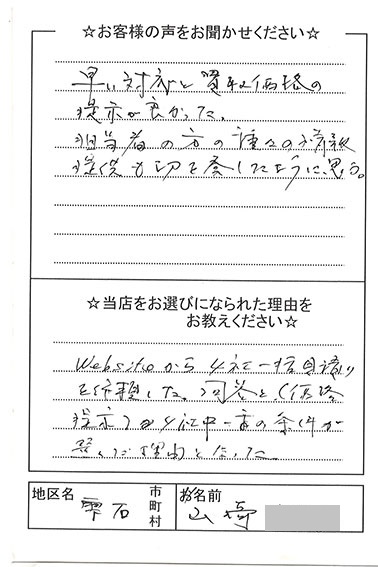 ☆お客様の声をお聞かせください☆
早い対応と買取価格の
提示が良かった。
担当者の方の種々の情報
提供も功を奏したように思う。
☆当店をお選びになられた理由を
お教えください☆
Websiteから4社一括見積り
を依頼した。回答と、価格
提示が4社中一番の条件が
選んだ理由となった。
地区名 雫石 市町村 お名前 山崎